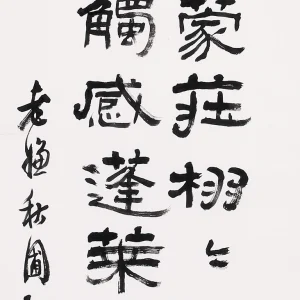 蒙莊栩々
觸感蓬萊
老鰟秋圃